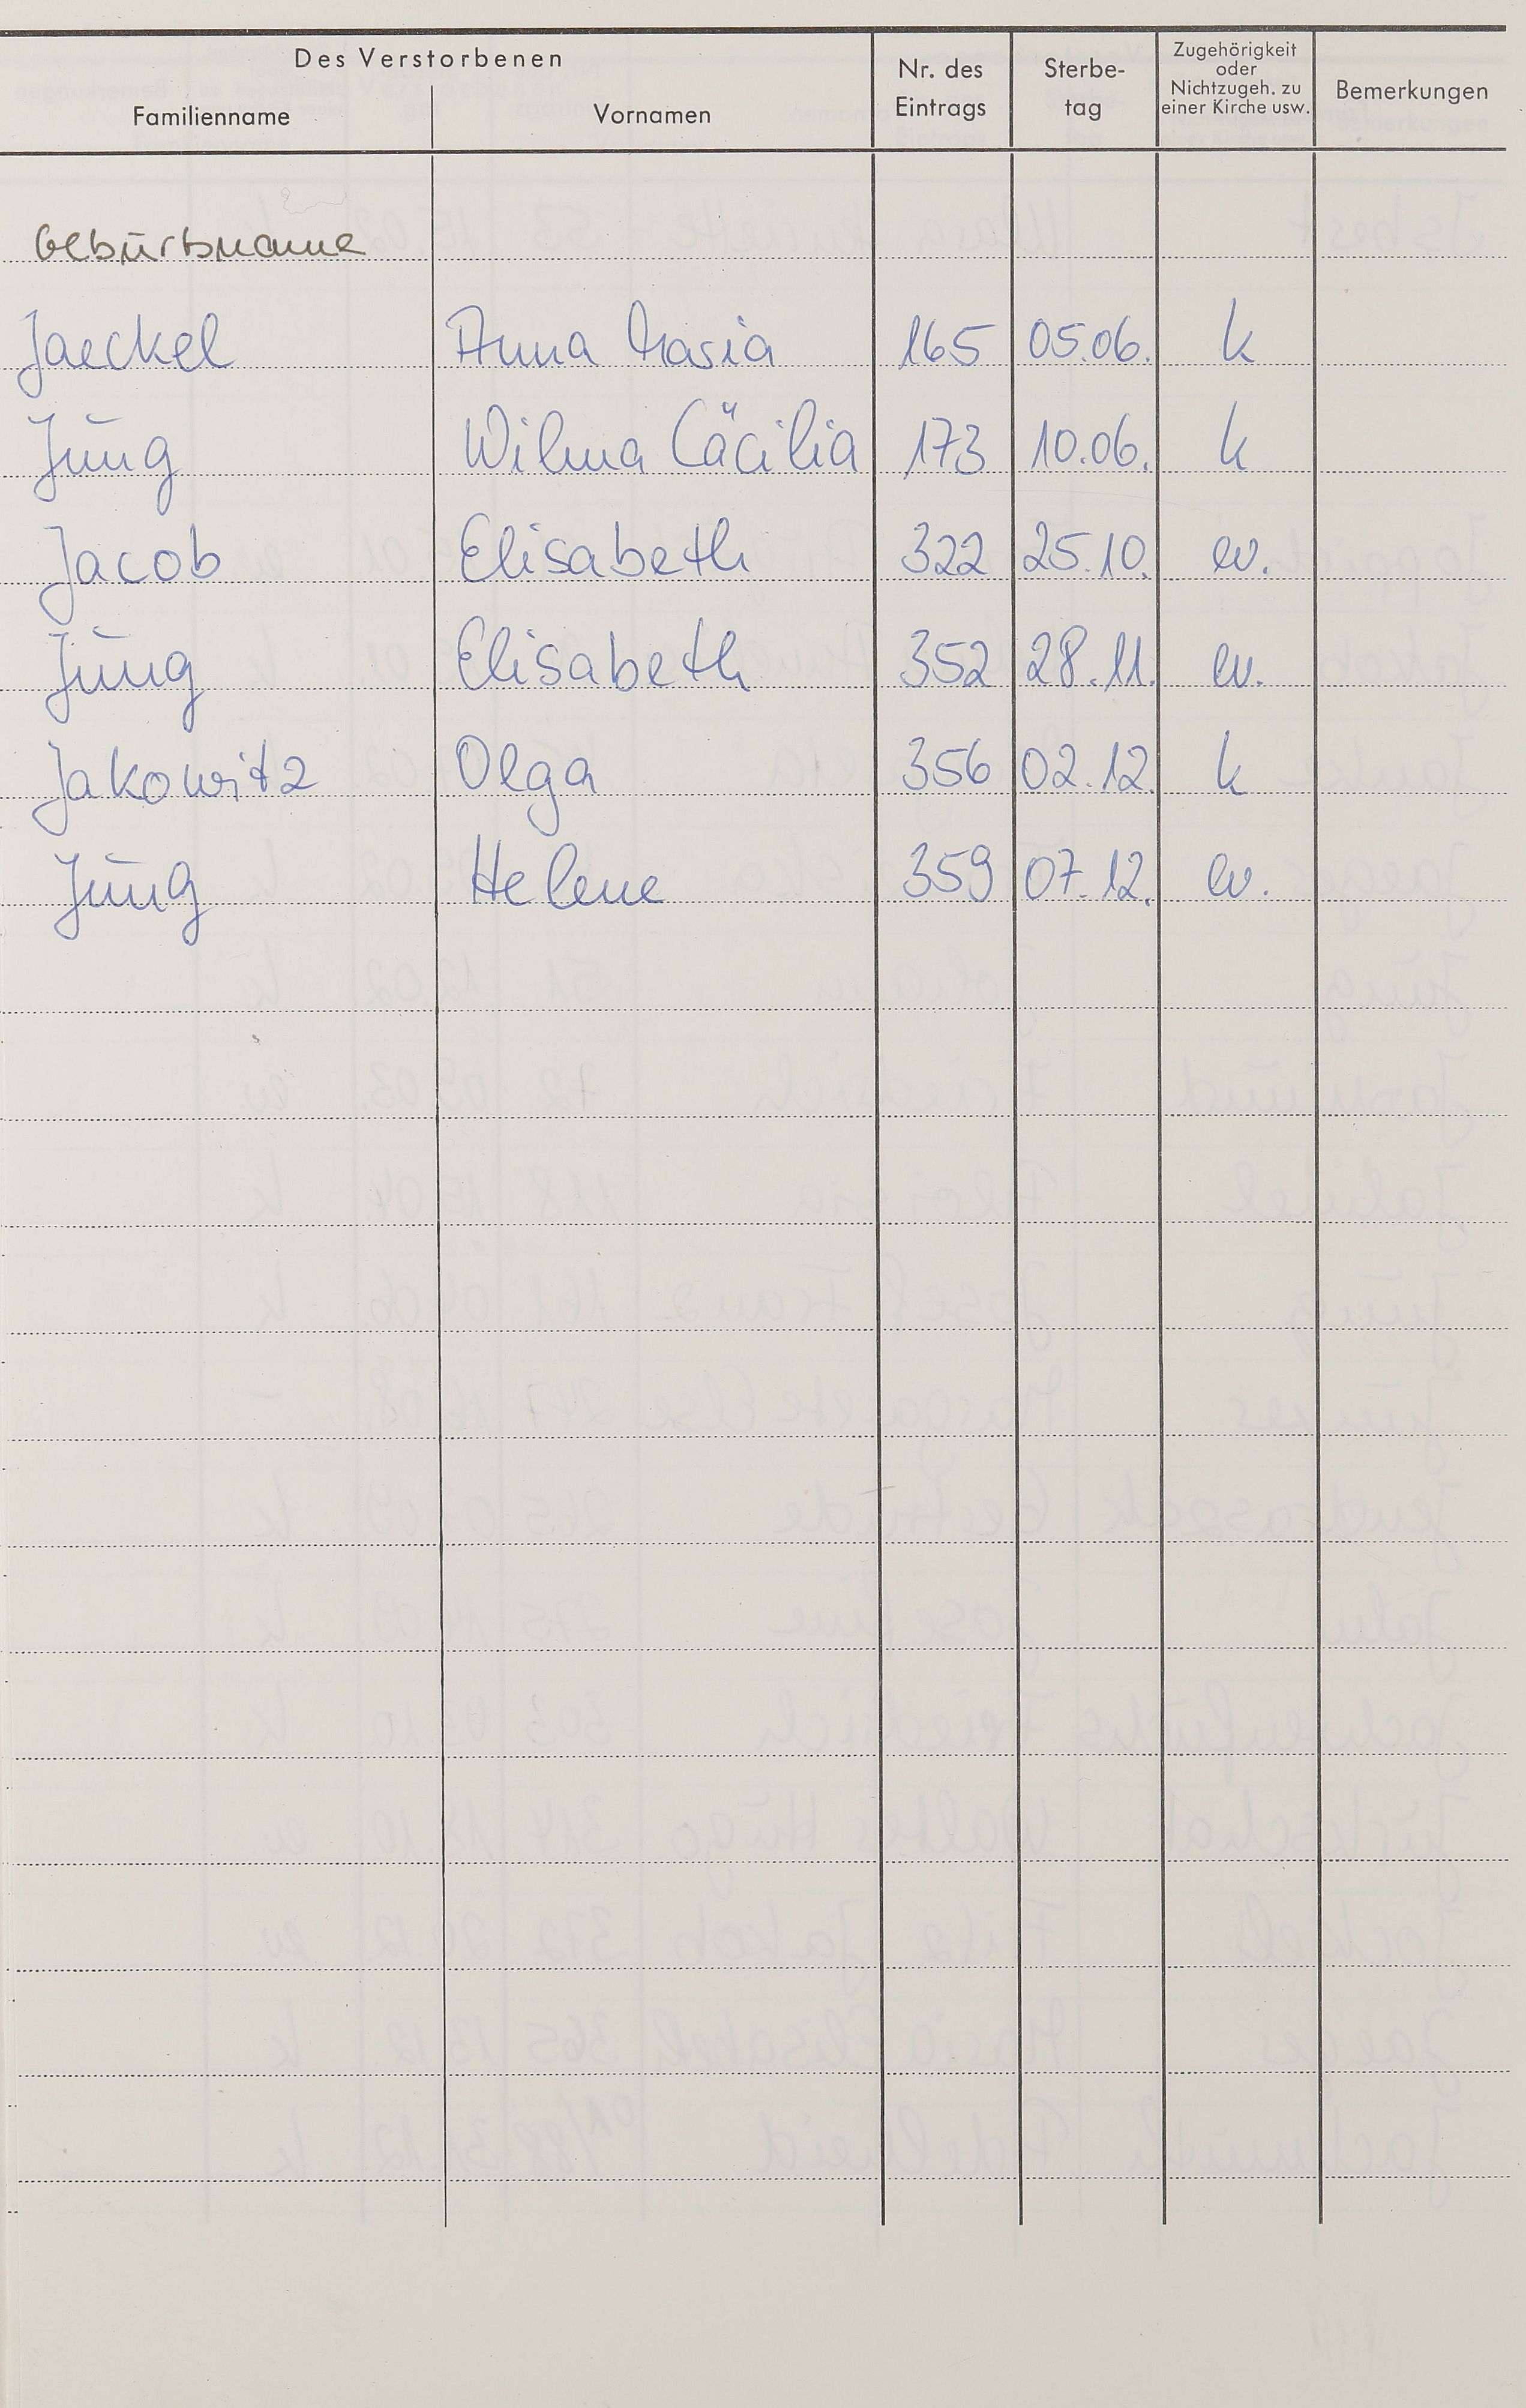 Des Verstorbenen
Familienname Vornamen Nr. des Eintrags Sterbe- tag Zugehörigkeit oder Nichtzugeh. zu einer Kirche usw. Bemerkungen
Geburtsname
Jaeckel Anna Maria 165 05.06. k
Jung Wilma Cäcilia 173 10.06. k
Jacob Elisabeth 322 25.10. ev.
Jung Elisabeth 352 28.11. ev.
Jakowitz Olga 356 02.12. k
Jung Helene 359 07.12. ev.